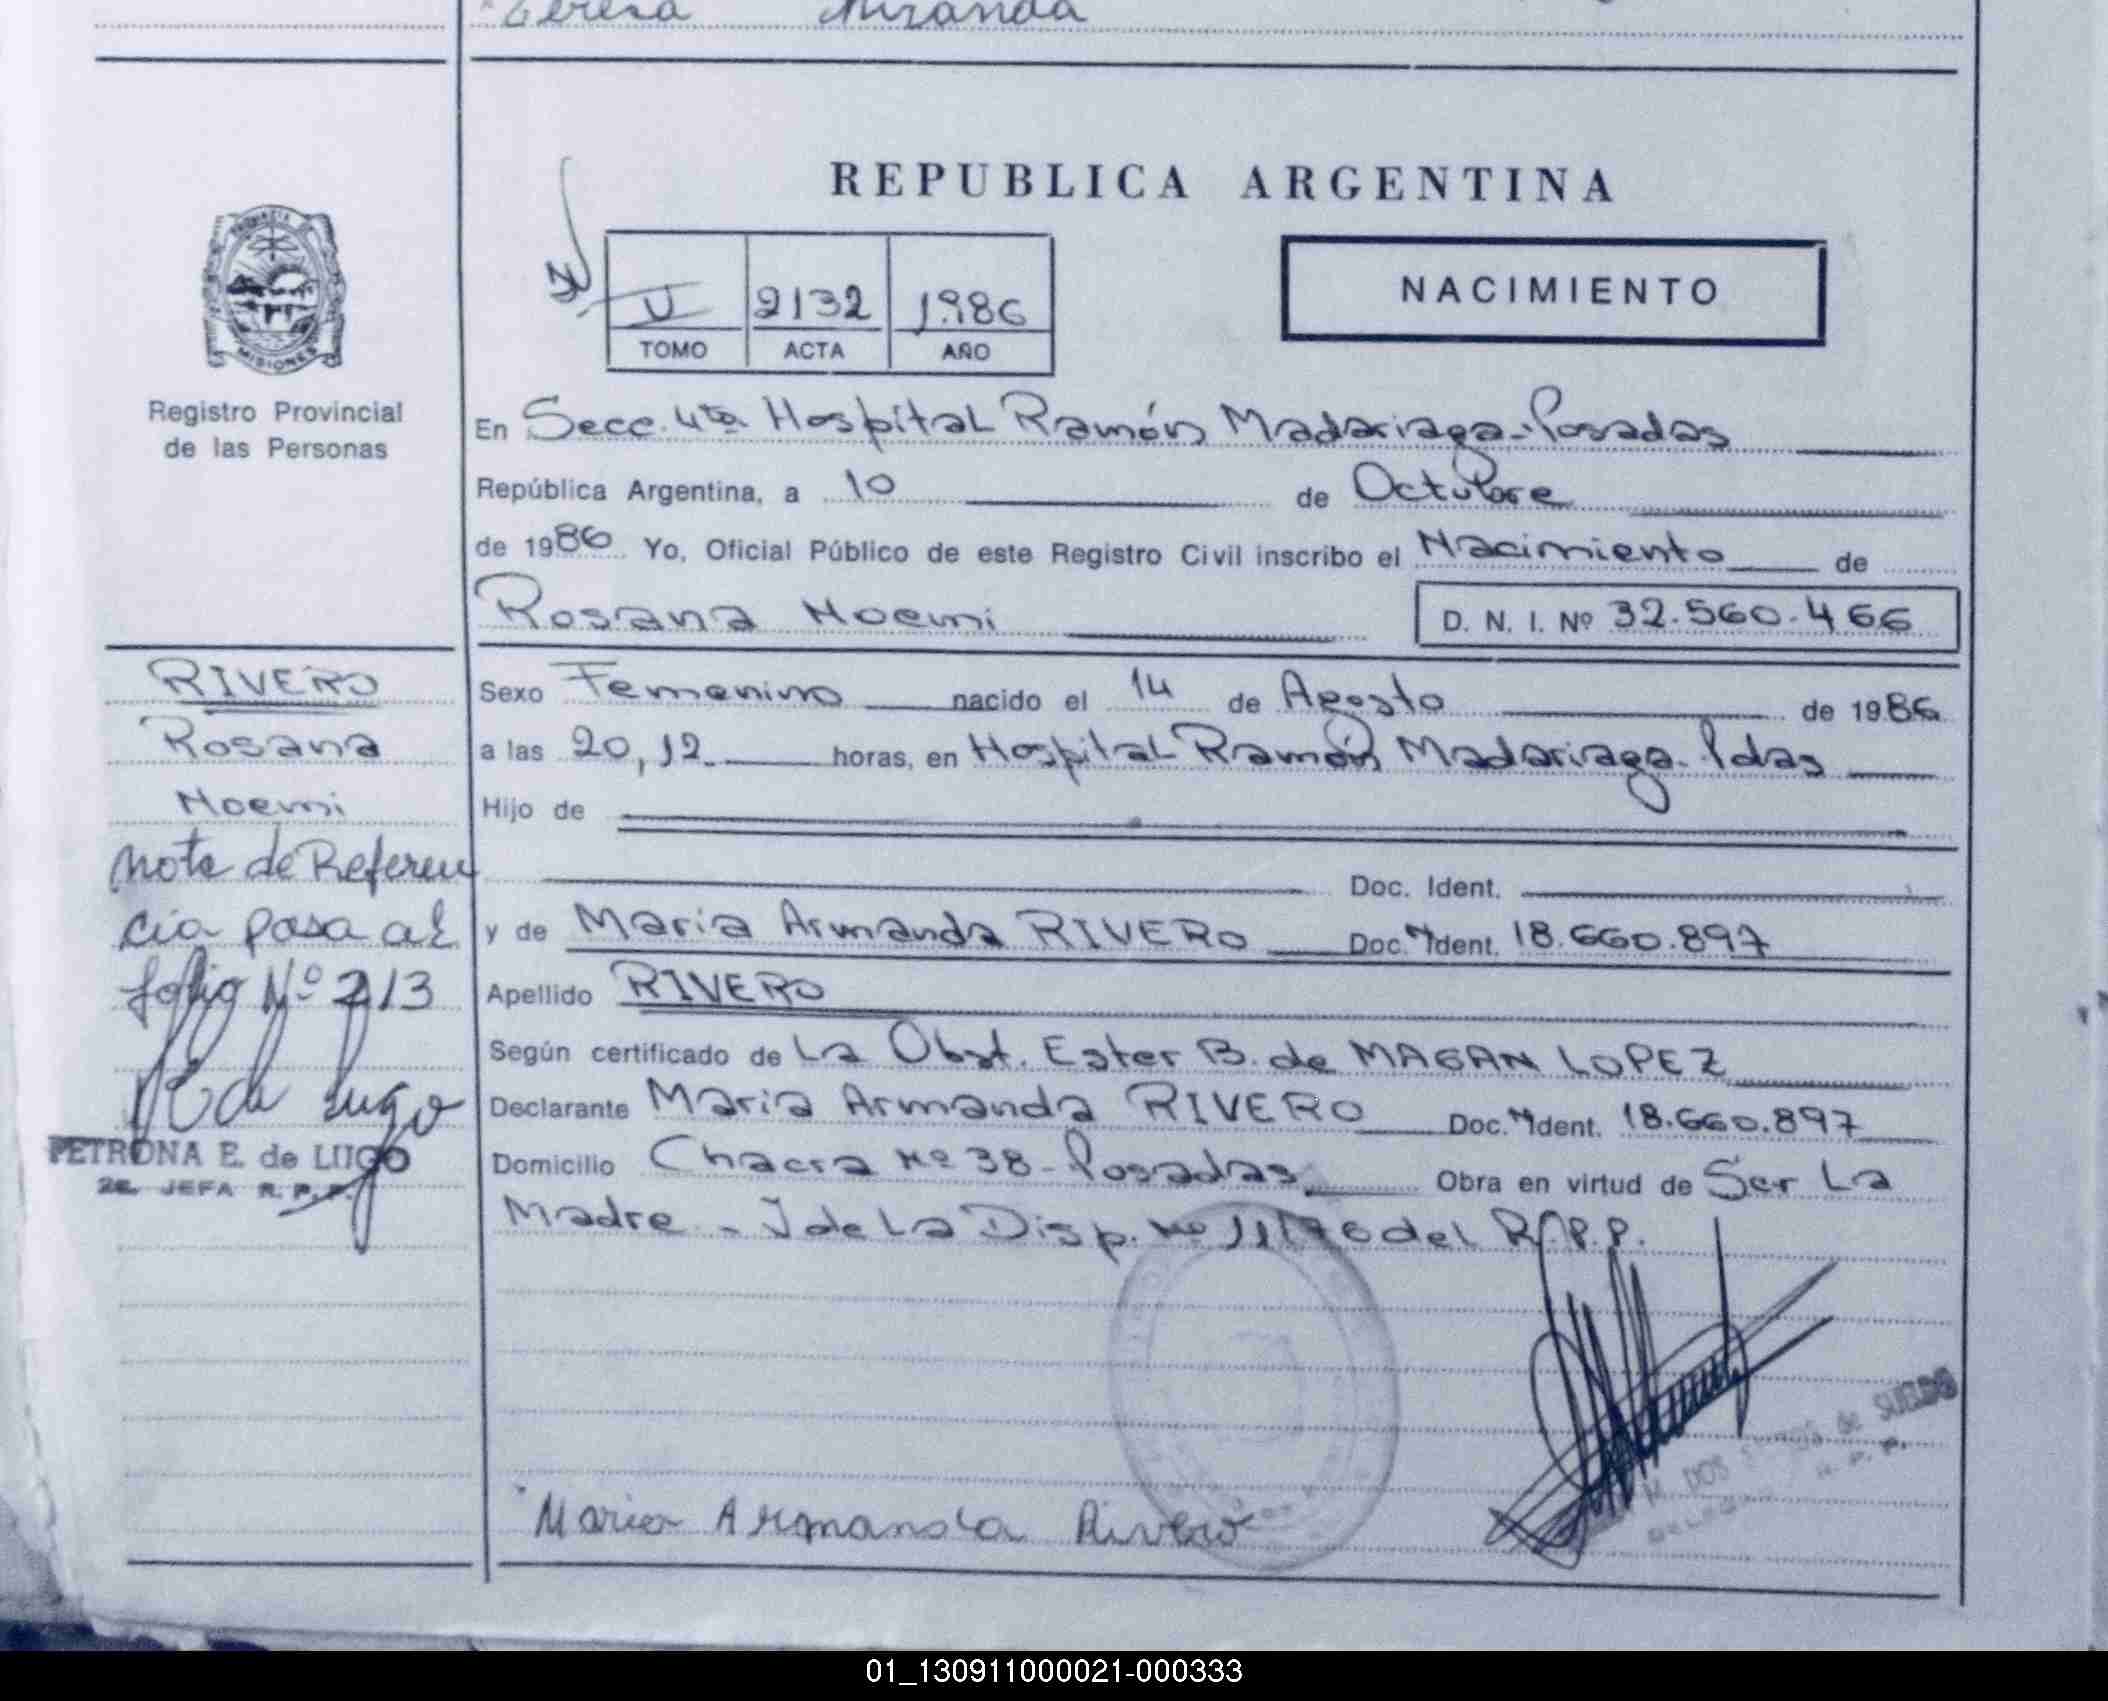 Teresa Miranda
REPUBLICA ARGENTINA
NACIMIENTO
V 2132 1986
TOMO ACTA AÑO
PROVINCIA DE
MISIONES
Registro Provincial
de las Personas
En Secc. 4ta Hospital Ramón Madariaga - Posadas
República Argentina, a 10 de Octubre
de 1986 Yo, Oficial Público de este Registro Civil inscribo el Nacimiento de
Rosana Noemi D. N. I. Nº 32.560.466
RIVERO
Rosana
Noemi
nota de Referen
cia pasa al
folio Nº 213
PETRONA E. de LUGO
2a. JEFA R. P. P.
Sexo Femenino nacido el 14 de Agosto de 1986
a las 20,12 horas, en Hospital Ramón Madariaga - Pdas
Hijo de
Doc. Ident.
y de Maria Armanda RIVERO Doc. Ident. 18.660.897
Apellido RIVERO
Según certificado de La Obst. Ester B. de MAGAN LOPEZ
Declarante Maria Armanda RIVERO Doc. Ident. 18.660.897
Domicilio Chacra Nº 38 - Posadas Obra en virtud de Ser La
Madre - I de La Disp. Nº 11/76 del R.P.P.
Maria Armanda Rivero
M. DOS de SUELDO
R. P. P.
01_130911000021-000333